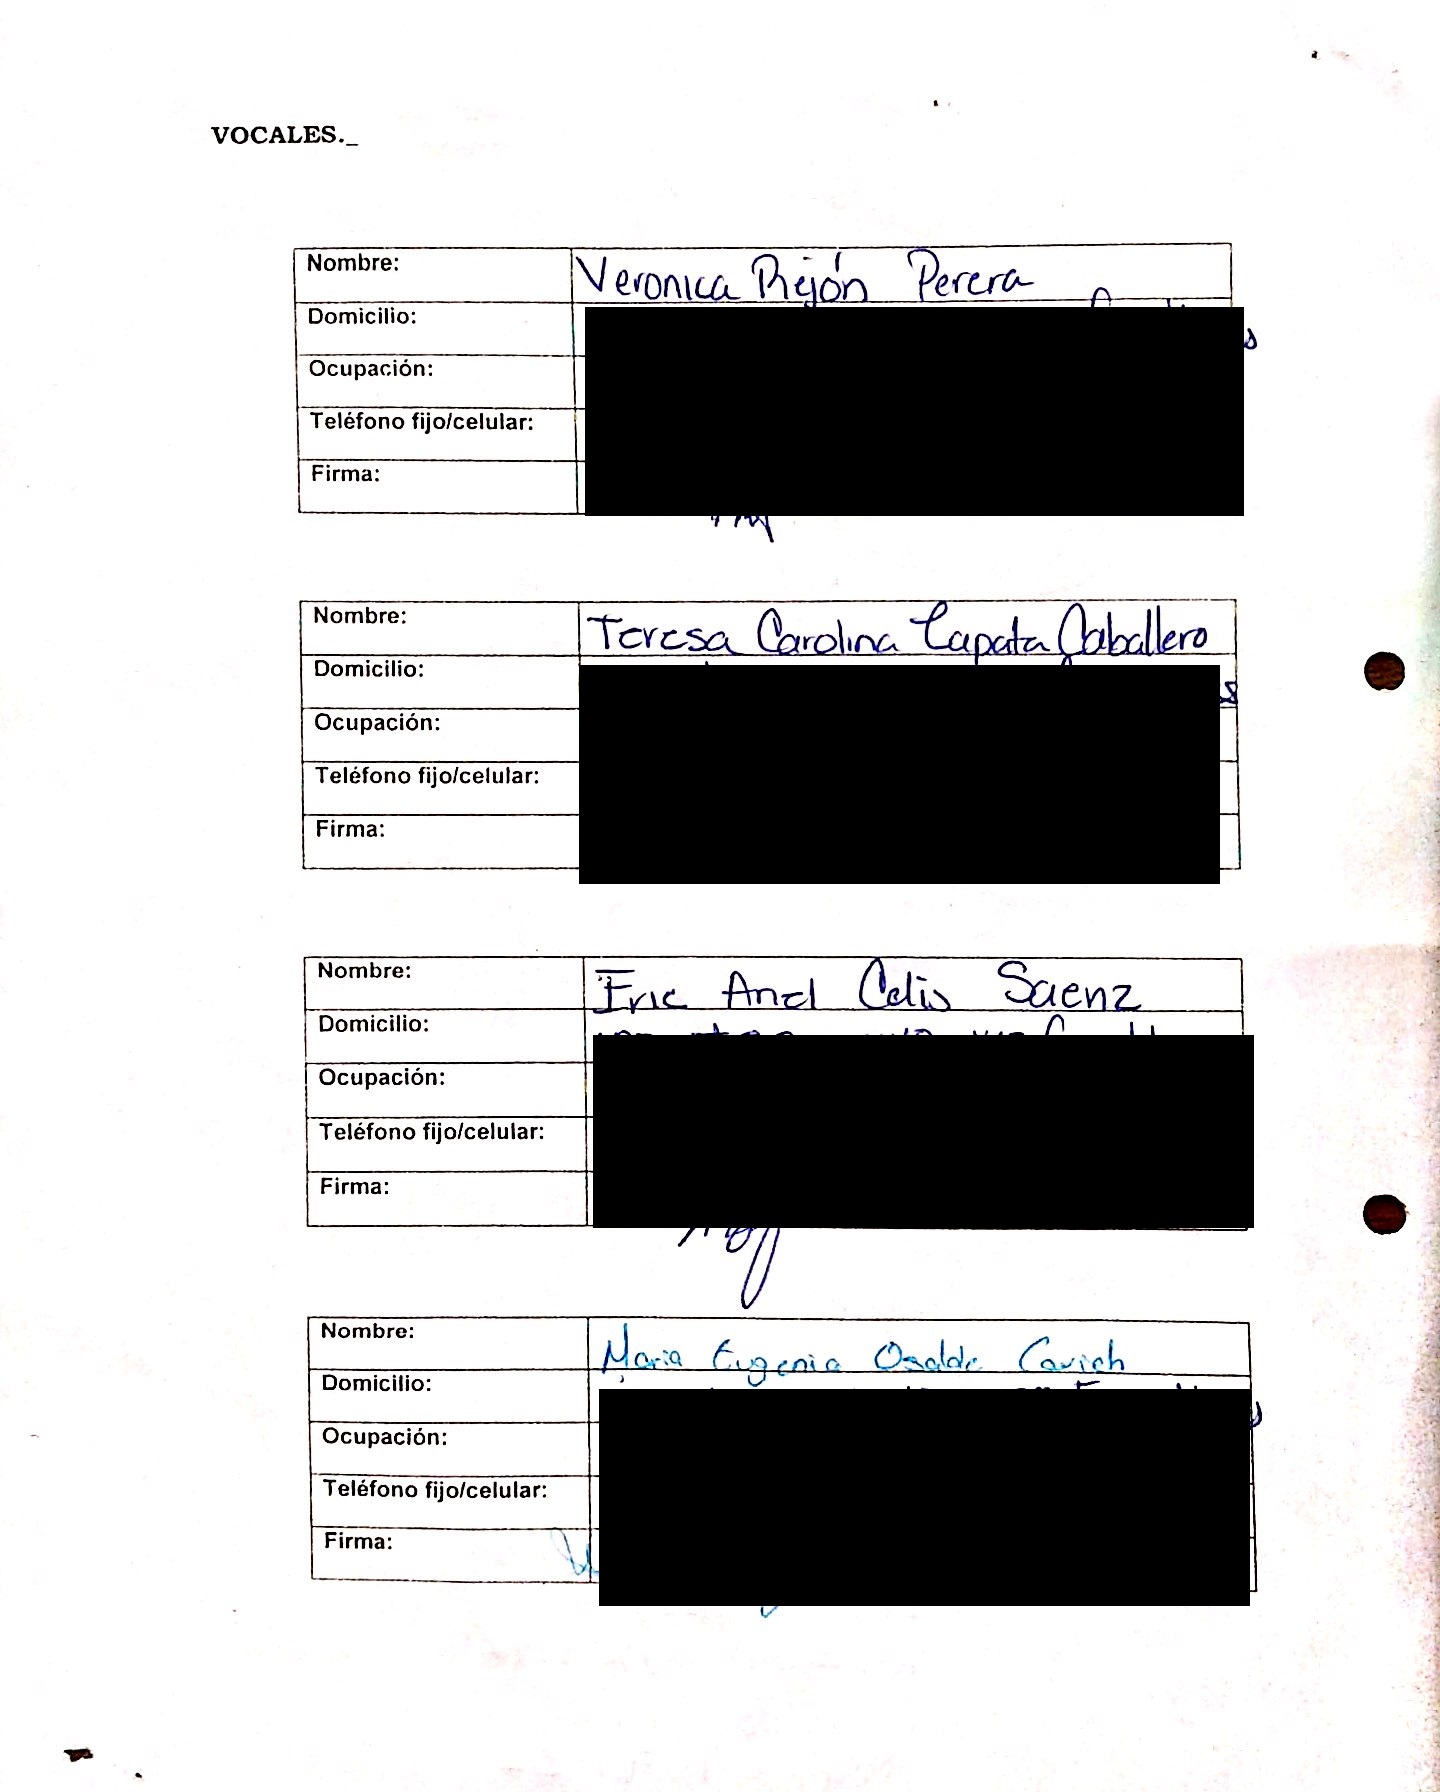 VOCALES._
Nombre: Veronica Rejón Perera
Domicilio:
Ocupación:
Teléfono fijo/celular:
Firma:
Nombre: Teresa Carolina Zapata Caballero
Domicilio:
Ocupación:
Teléfono fijo/celular:
Firma:
Nombre: Eric Celis Saenz
Domicilio:
Ocupación:
Teléfono fijo/celular:
Firma:
Nombre: Maria Eugenia
Domicilio:
Ocupación:
Teléfono fijo/celular:
Firma: